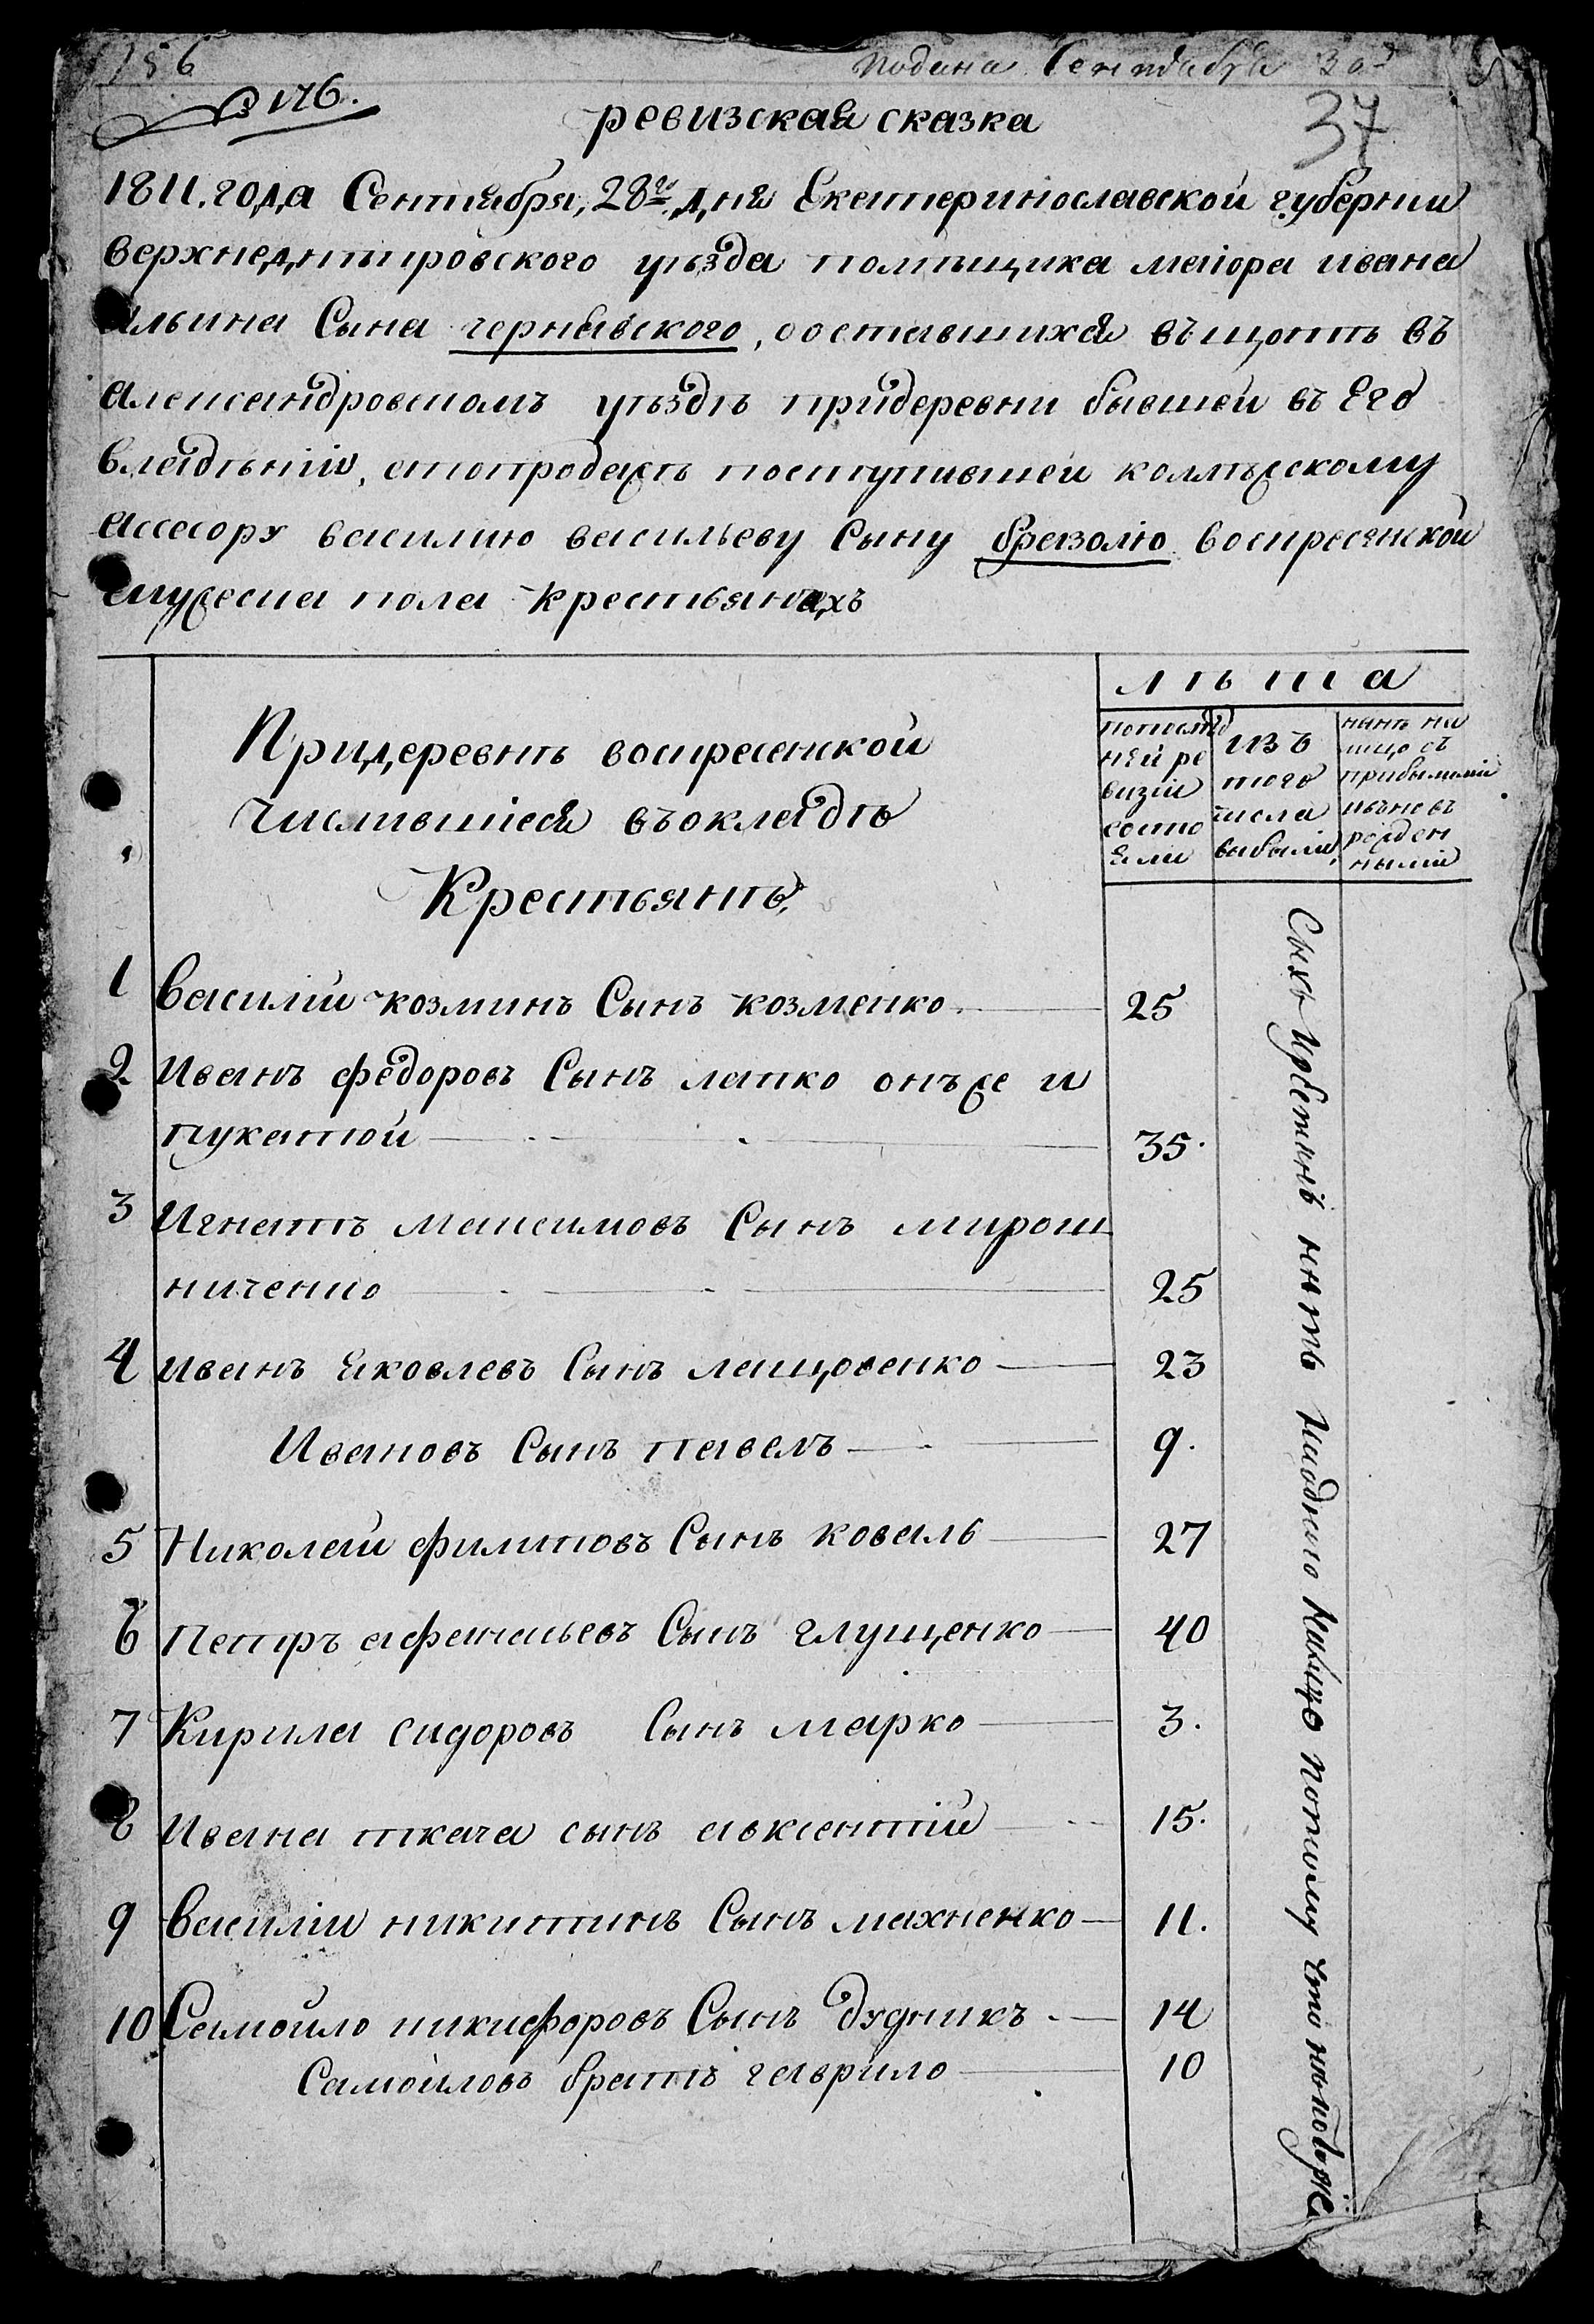 156
подана Сентября 30д
№ 176.
37
ревизская сказка
1811. года Сентября, 28го дня Екатеринославской губернии
верхнеднпировского уѣзда помѣщика маіора ивана
ильина Сына чернявского,ооставшихся въ щотѣ въ
александровскомъ уѣздѣ придеревни бывшей въ Его
владѣніи, а попродажѣ поступившей коллѣжскому
ассесору василию васильеву Сыну бразолю воскресенской
мужеска пола крестьянахъ
Придеревнѣ воскресенской
числившіеся въокладѣ
Крестьянѣ,
лѣта
попослѣд
ней ре
визіи
состо
яли
изъ
того
числа
выбыли,
нанъ ли
лицо съ
прибылыми
иьновъ
рожден
ными
1 василий козминъ Сынъ козменко 25
2 Иванъ федоровъ Сынъ лапко онъже и
пукатой 35.
3 Игнатъ максимовъ Сынъ мирош
ниченко 25
4 иванъ яковлевъ Сынъ лащовенко 23
Ивановъ Сынъ павелъ 9.
5 Николай филиповъ Сынъ коваль 27
6 Петръ афанасьевъ Сынъ глущенко 40
7 Кирила сидоровъ Сынъ марко 3.
8 Ивана ткача сынъ авксентій 15.
9 василій никитинъ Сынъ махненко 11.
10 Самойло никифоровъ Сынъ дудникъ 14
Самойловъ братъ гаврило 10
Сихъ крестянъ нѣтъ ниодного налицо потому что